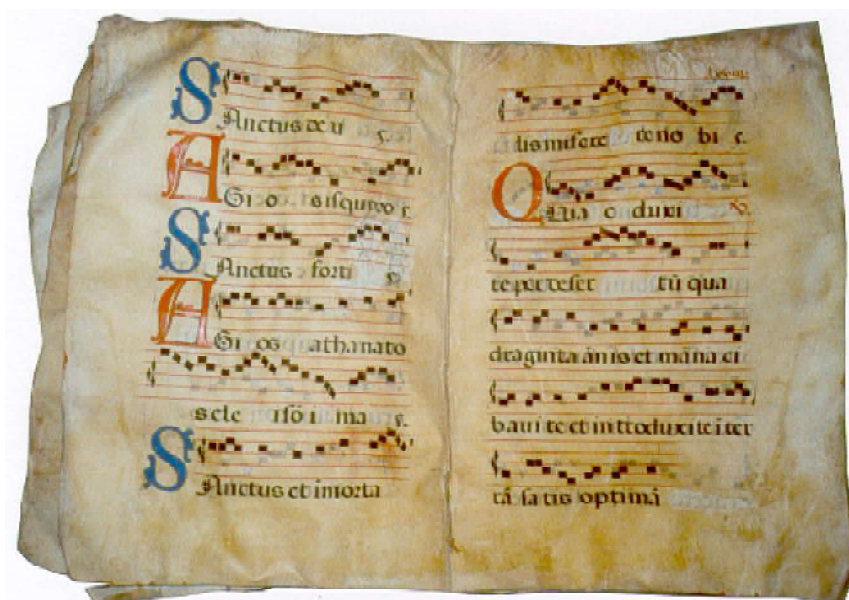 Sanctus de u s.
Agi o sisquiro s.
Sanctus forti s.
Agi os qathanato
s ele isõ i ma s.
Sanctus et imorta
lis misere re no bi s.
Quia e duxi
te per deser tũ qua
draginta ãnis et mãna ci
baui te et introduxi te ĩ ter
rã satis optimã